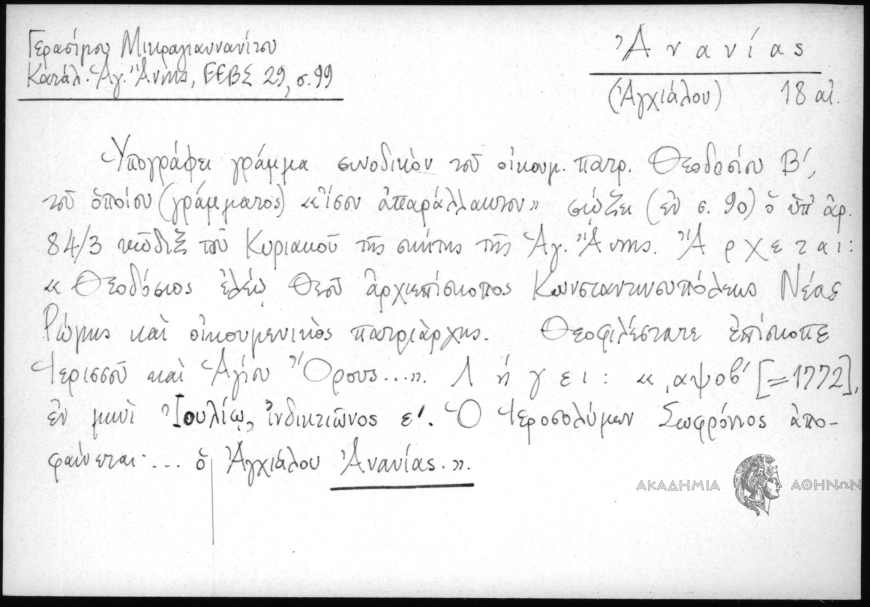 Γερασίμου Μικραγιαννανίτου
Κατάλ. Ἁγ. Ἄννης, ΕΕΒΣ 29, σ. 99
Ἀνανίας
(Ἀγχιάλου) 18 αἰ.
Ὑπογράφει γράμμα συνοδικὸν τοῦ οἰκουμ. πατρ. Θεοδοσίου Β′,
τοῦ ὁποίου (γράμματος) «ἴσον ἀπαράλλακτον» σῴζει (ἐν σ. 90) ὁ ὑπ' ἀρ.
84/3 κῶδιξ τοῦ Κυριακοῦ τῆς σκήτης τῆς Ἁγ. Ἄννης. Ἄρχεται:
« Θεοδόσιος ἐλέῳ Θεοῦ ἀρχιεπίσκοπος Κωνσταντινουπόλεως Νέας
Ῥώμης καὶ οἰκουμενικὸς πατριάρχης. Θεοφιλέστατε ἐπίσκοπε
Ἱερισσοῦ καὶ Ἁγίου Ὄρους...». Λήγει: « ͵αψοβ′ [=1772],
ἐν μηνὶ Ἰουλίῳ, ἰνδικτιῶνος ε′. Ὁ Ἱεροσολύμων Σωφρόνιος ἀπο-
φαίνεται· ... ὁ Ἀγχιάλου Ἀνανίας.».
ΑΚΑΔΗΜΙΑ ΑΘΗΝΩΝ